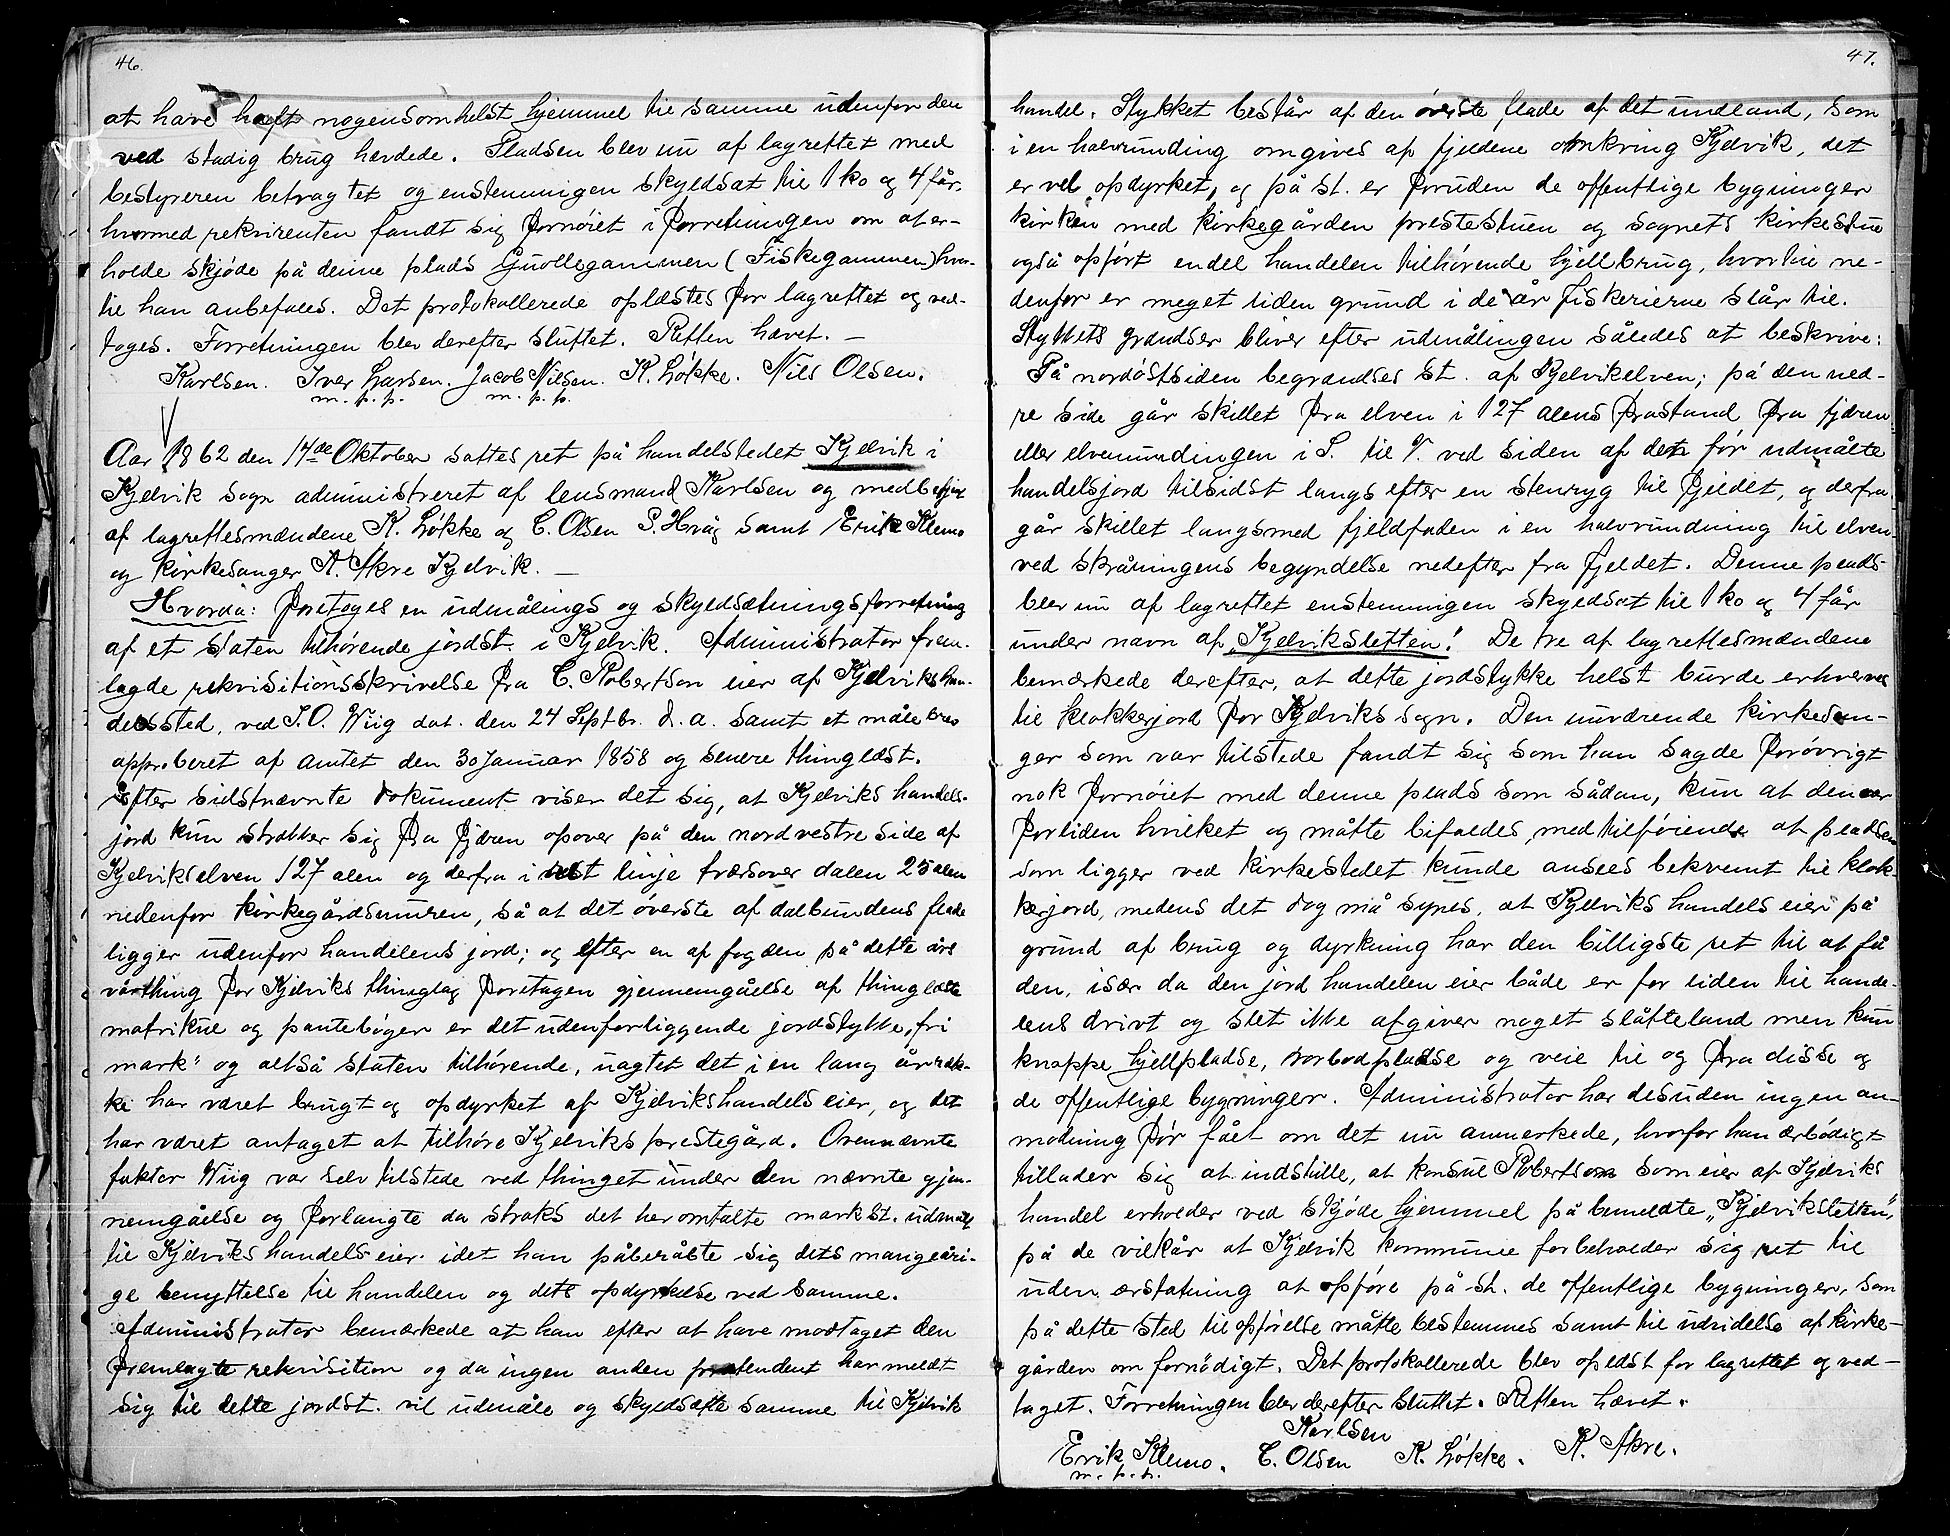 46.
at have haft nogensomhelst hjemmel til samme udenfor den
ved stadig brug hævdede. Pladsen blev nu af lagrettet med
bestyreren betragtet og enstemmigen skyldsat til 1 ko og 4 får.
hvormed rekvirenten fandt sig fornøiet i forretningen om at er-
holde skjøde på denne plads Guollegammen (Fiskegammen) hvor-
til han anbefales. Det protokollerede oplæstes for lagrettet og ved-
toges. Forretningen blev derefter sluttet. Retten hævet. —
Karlsen. Iver Larsen. Jacob Nilsen. K. Løkke. Nils Olsen.
m. p. p. m. p. p.
Aar 1862 den 14de Oktober sattes ret på handelstedet Kjelvik i
Kjelvik sogn administreret af lensmand Karlsen og medbetjent
af lagrettesmændene K. Løkke og C. Olsen S. Hvåg samt Erik Klemo
og kirkesanger A. Akre Kjelvik. —
Hvorda: foretoges en udmålings og skyldsætningsforretning
af et staten tilhørende jordst. i Kjelvik. Administrator frem-
lagde rekvisitionsskrivelse fra C. Robertson eier af Kjelviks han-
delssted, ved J. O. Wiig dat. den 24 Septbr. d. a. samt et målebrev
approberet af amtet den 30 Januar 1858 og senere thinglæst.
Efter sidstnævnte dokument viser det sig, at Kjelviks handels-
jord kun strækker sig fra fjæren opover på den nordvestre side af
Kjelvikselven 127 alen og derfra i ret linje tværsover dalen 25 alen
nedenfor kirkegårdsmuren, så at det øverste af dalbundens flade
ligger udenfor handelens jord; og efter en af fogden på dette års
vårthing for Kjelviks thinglag foretagen gjennemgåelse af thinglæste
matrikul og pantebøger er det udenforliggende jordstykke „fri
mark" og altså staten tilhørende, uagtet det i en lang årræk-
ke har været brugt og opdyrket af Kjelvikshandels eier, og det
har været antaget at tilhøre Kjelviks prestegård. Ovennævnte
faktor Wiig var selv tilstede ved thinget under den nævnte gjen-
nemgåelse og forlangte da straks det heromtalte markst. udmålt
til Kjelviks handels eier idet han påberåbte sig dets mangeåri-
ge benyttelse til handelen og dets opdyrkelse ved samme.
Administrator bemærkede at han efter at have modtaget den
fremlagte rekvisition og da ingen anden prætendent har meldt
sig til dette jordst. vil udmåle og skyldsætte samme til Kjelvik
47.
handel. Stykket består af den øverste flade af det undland, som
i en halvrunding omgives af fjeldene omkring Kjelvik, det
er vel opdyrket, og på st. er foruden de offentlige bygninger
kirken med kirkegården prestestuen og sognets kirkestue
også opført endel handelen tilhørende hjellbrug, hvortil ne-
denfor er meget liden grund i de år fiskerierne slår til.
Stykkets grændser bliver efter udmålingen således at beskrive:
På nordøstsiden begrændses st. af Kjelvikelven; på den ned-
re side går skillet fra elven i 127 alens frastand fra fjæren
eller elvemundingen i S. til V. ved siden af den før udmålte
handelsjord tilsidst langs efter en stenryg til fjeldet, og derfra
går skillet langsmed fjeldfoden i en halvrundning til elven
ved skråningens begyndelse nedefter fra fjeldet. Denne plads
blev nu af lagrettet enstemmigen skyldsat til 1 ko og 4 får
under navn af „Kjelviksletten". De tre af lagrettesmændene
bemærkede derefter, at dette jordstykke helst burde erhverves
til klokkerjord for Kjelviks sogn. Den nuværende kirkesan-
ger som var tilstede fandt sig som han sagde forøvrigt
nok fornøiet med denne plads som sådan, kun at den var
forliden hvilket og måtte bifaldes, med tilføiende at pladsen
som ligger ved kirkestedet kunde ansees bekvemt til klok-
kerjord, medens det dog må synes, at Kjelviks handels eier på
grund af brug og dyrkning har den billigste ret til at få
den, især da den jord handelen eier både er for liden til hande-
lens drivt og slet ikke afgiver noget slåtteland men kun
knappe hjellpladse, rorbodpladse og veie til og fra disse og
de offentlige bygninger. Administrator har desuden ingen an-
modning før fået om det nu anmerkede, hvorfor han ærbødigt
tillader sig at indstille, at konsul Robertson som eier af Kjelviks
handel erholder ved skjøde hjemmel på bemeldte „Kjelviksletten",
på de vilkår at Kjelvik kommune forbeholder sig ret til
uden erstatning at opføre på st. de offentlige bygninger, som
på dette sted til opførelse måtte bestemmes samt til udvidelse af kirke-
gården om fornødigt. Det protokollerede blev oplæst for lagrettet og ved-
taget. Forretningen blev derefter sluttet. Retten hævet.
Karlsen
Erik Klemo. C. Olsen K. Løkke. A. Akre.
m. p. p.